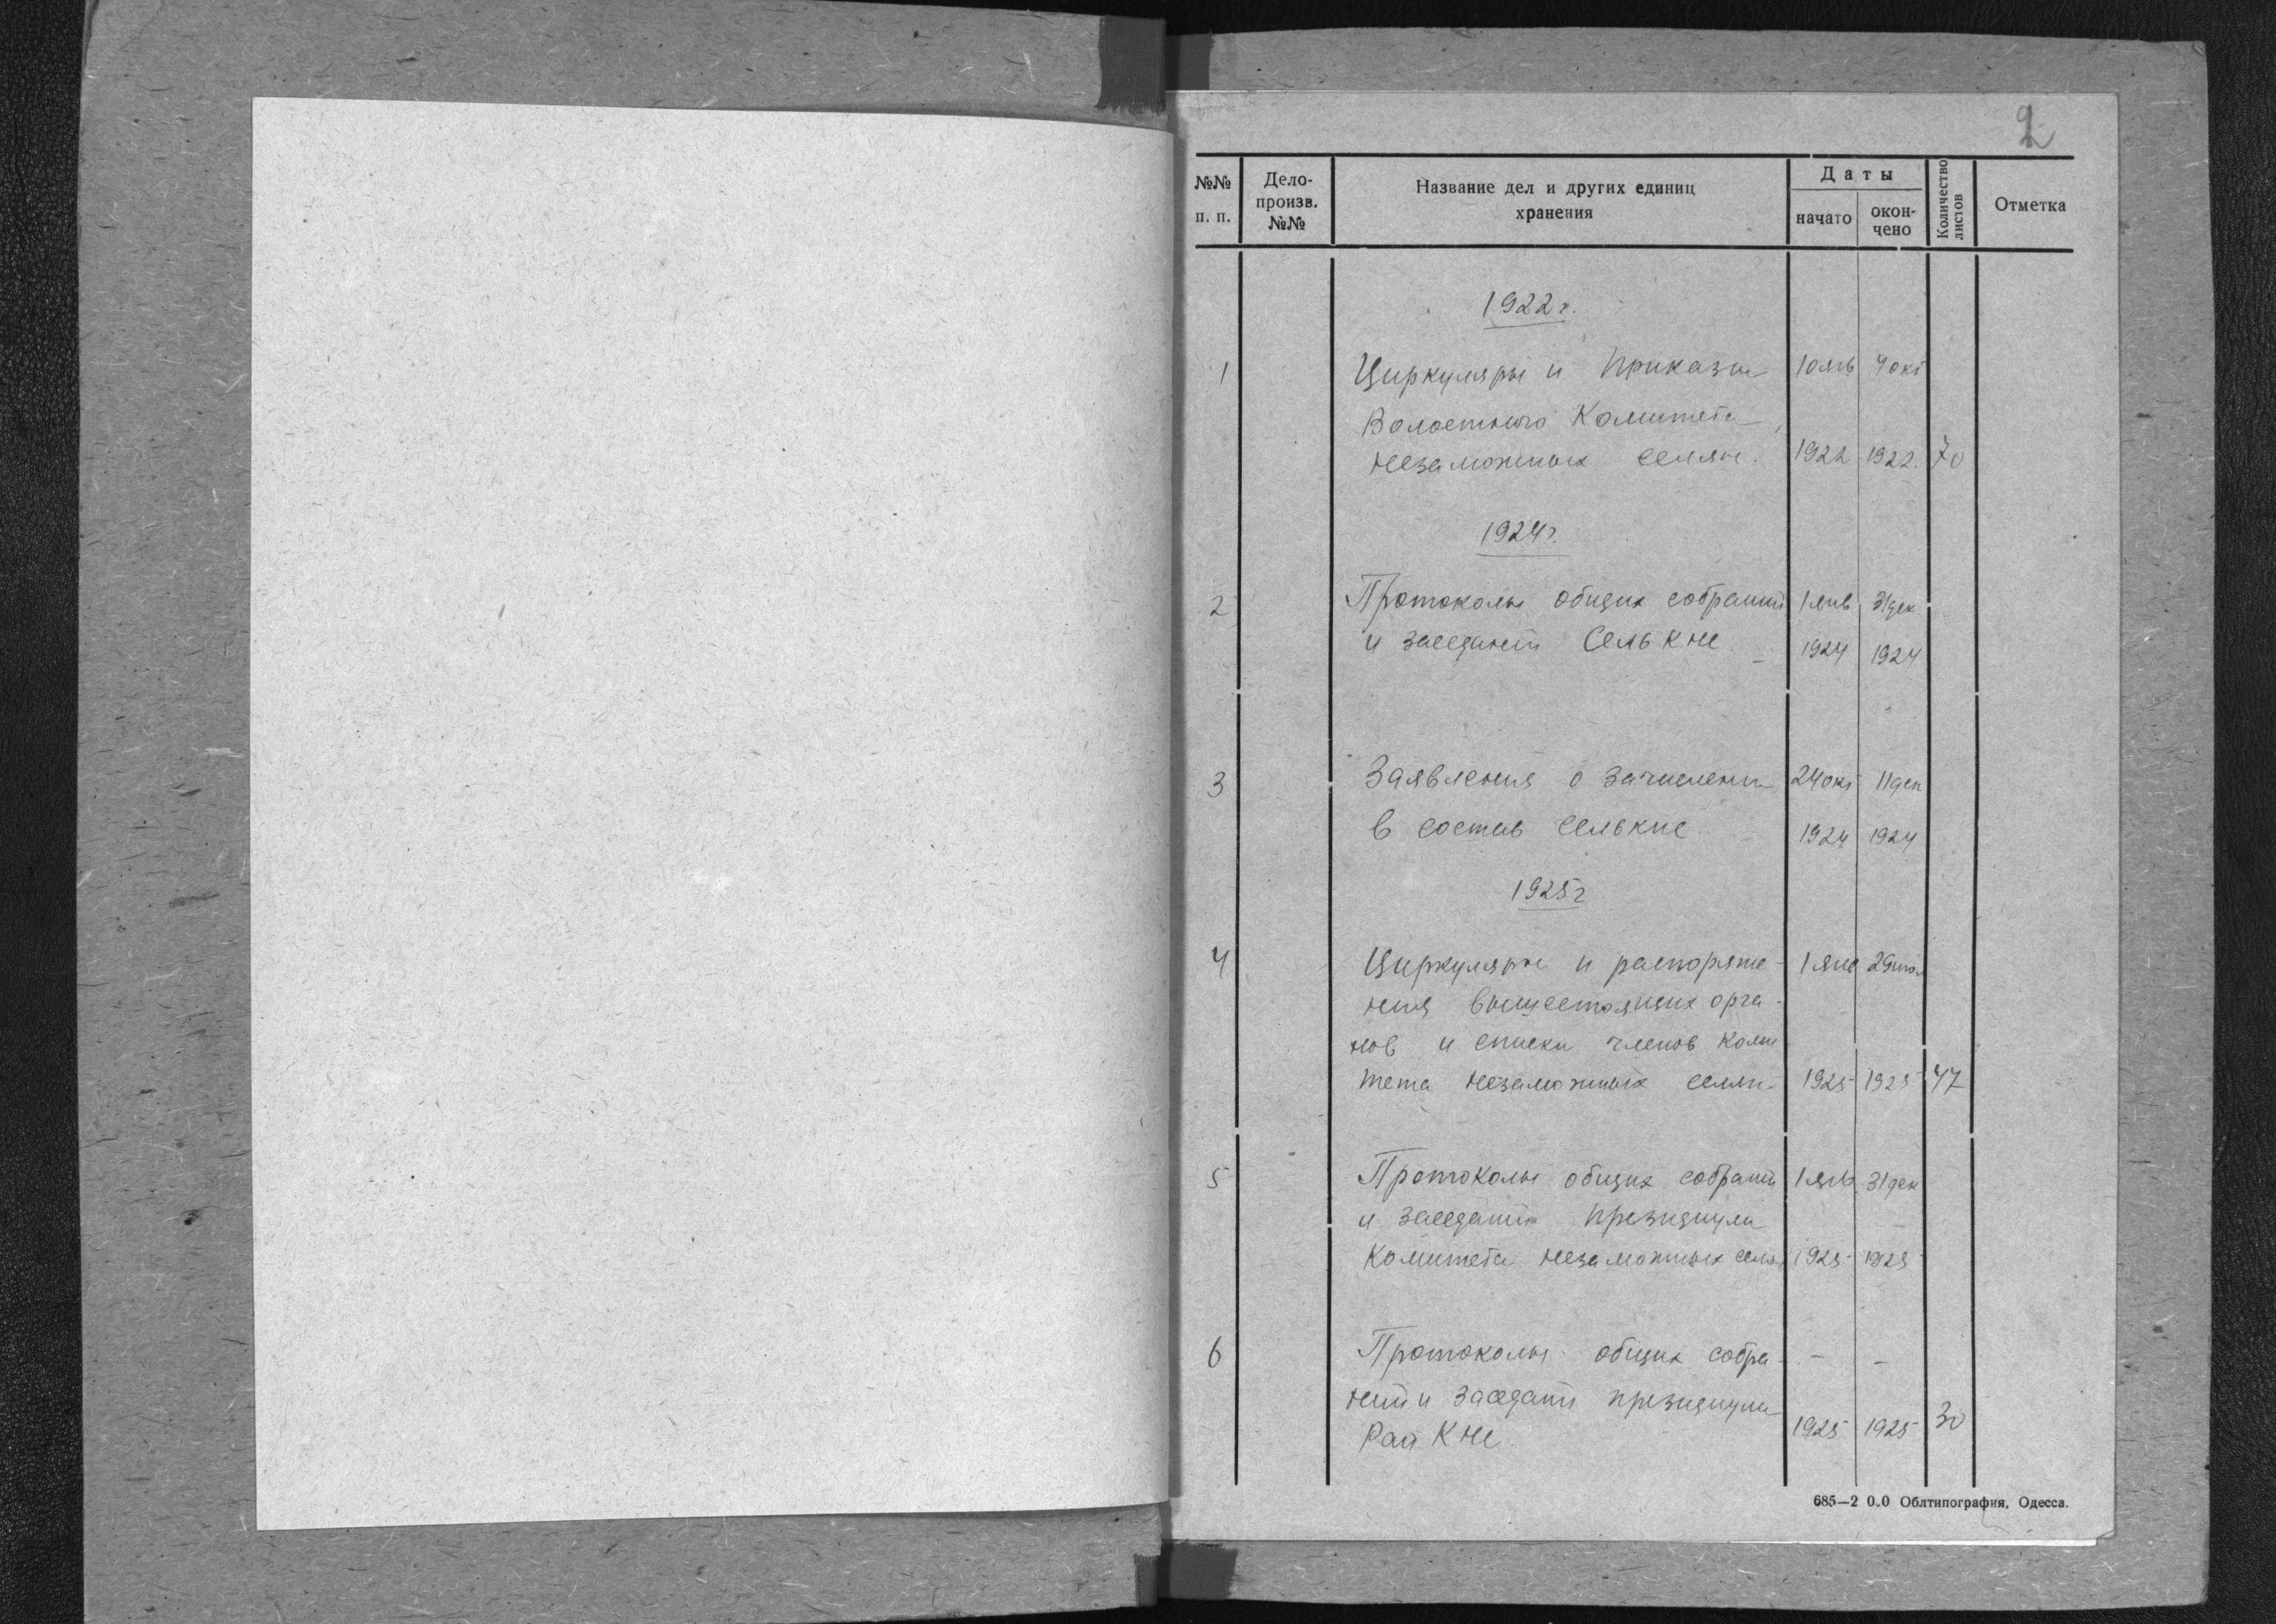 2
№№ п. п.
Дело-
произв.
№№
Название дел и других единиц
хранения
Даты
начато
окон-
чено
Количество
листов
Отметка
1922 г.
1 Циркуляры и приказы 10 янв 4 окт
Волостного Комитета
незаможных селян. 1922 1922. 70
1924 г.
2 Протоколы общих собраний 1 янв 31 дек
и заседаний СельКНС. 1924 1924
3 Заявления о зачислении 24 окт 11 дек
в состав сельКНС 1924 1924
1925 г
4 Циркуляры и распоряже- 1 янв
ния вышестоящих орга-
нов и списки членов коми
тета незаможных селян 1925 1925 47
5 Протоколы общих собраний 1 янв 31 дек
и заседаний президиума
Комитета незаможных селян 1925 1925
6 Протоколы общих собра- - -
ний и заседаний президиума
Рай КНС. 1925 1925 30
685—2 0.0 Облтипография, Одесса.